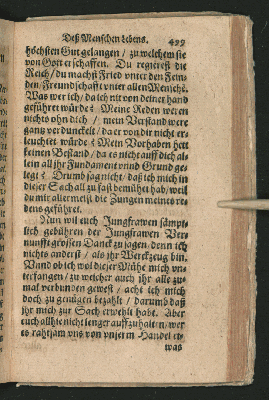 Deß Menschen Lebens. 499
höchsten Gut gelangen / zu welchem sie
von Gott erschaffen. Du regierest die
Reich / du machst Fried vnter den Fein-
den, Freundschafft vnter allen Mensché.
Was wer ich / da ich nit von deiner hand
geführet würde? Meine Reden weren
nichts ohn dich / mein Verstand were
gantz verdunckelt / da er von dir nicht er-
leuchtet würde? Mein Vorhaben hett
keinen Bestand / da es nicht auff dich al-
lein als ihr Fundament vnnd Grund ge-
legt? Drumb sag nicht / daß ich mich in
dieser Sach all zu fast bemühet hab, weil
du mir allermeist die Zungen meines re-
dens geführet.
Nun wil euch Jungfrawen sämpt-
lich gebühren der Jungfrawen Ver-
nunfft grossen Danck zu sagen, denn ich
nichts anderst / als ihr Werckzeug bin.
Vnnd ob ich wol dieser Mühe mich vn-
terfangen / zu welcher auch ihr alle zu-
mal verbunden gewest / acht ich mich
doch zu genügen bezahlt / darumb daß
ihr mich zur Sach erwehlt habt. Aber
euch allhie nicht lenger auffzuhalten, wer
es rahtsam vns von vnserm Handel et-
was